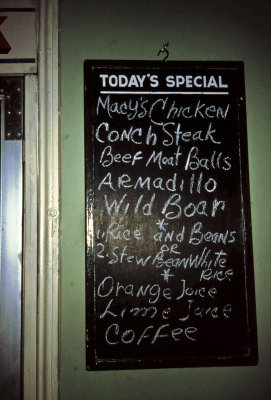 TODAY'S SPECIAL
Macy's Chicken
Conch Steak
Beef Meat Balls
Armadillo
Wild Boar
*
1. Rice and Beans
OR
2. Stew Bean White
* Rice
Orange Juice
Lime Juice
Coffee